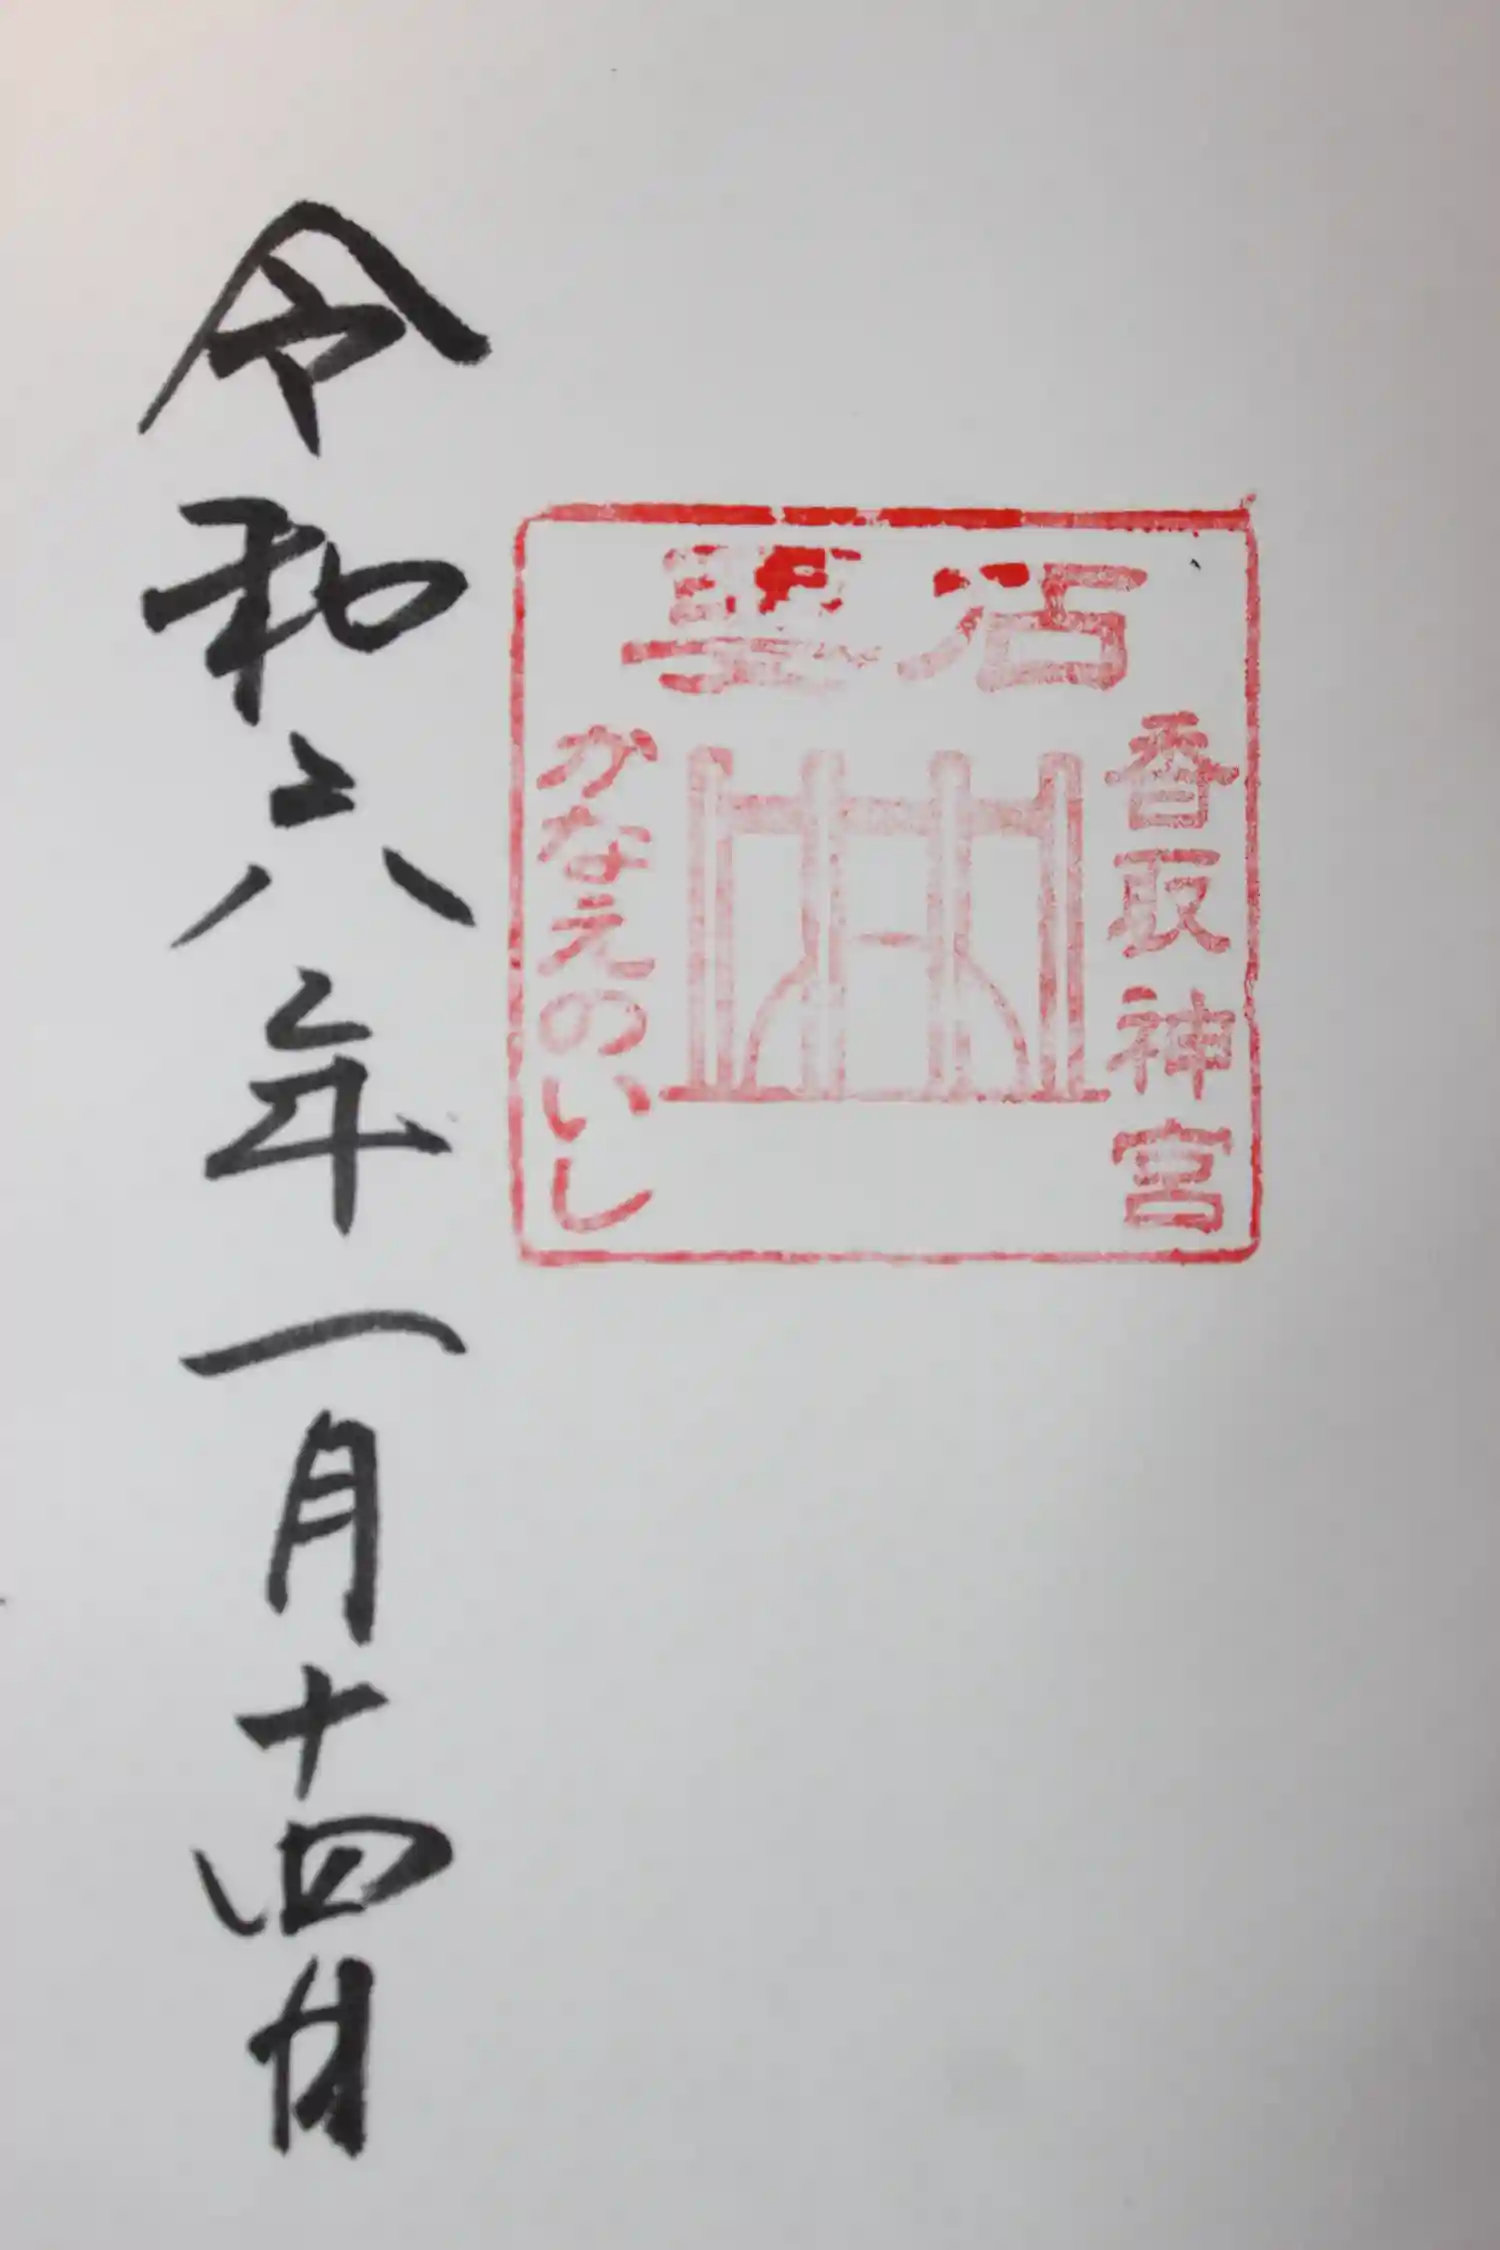 聖石
香取神宮
かなえのいし
令和六年一月十四日